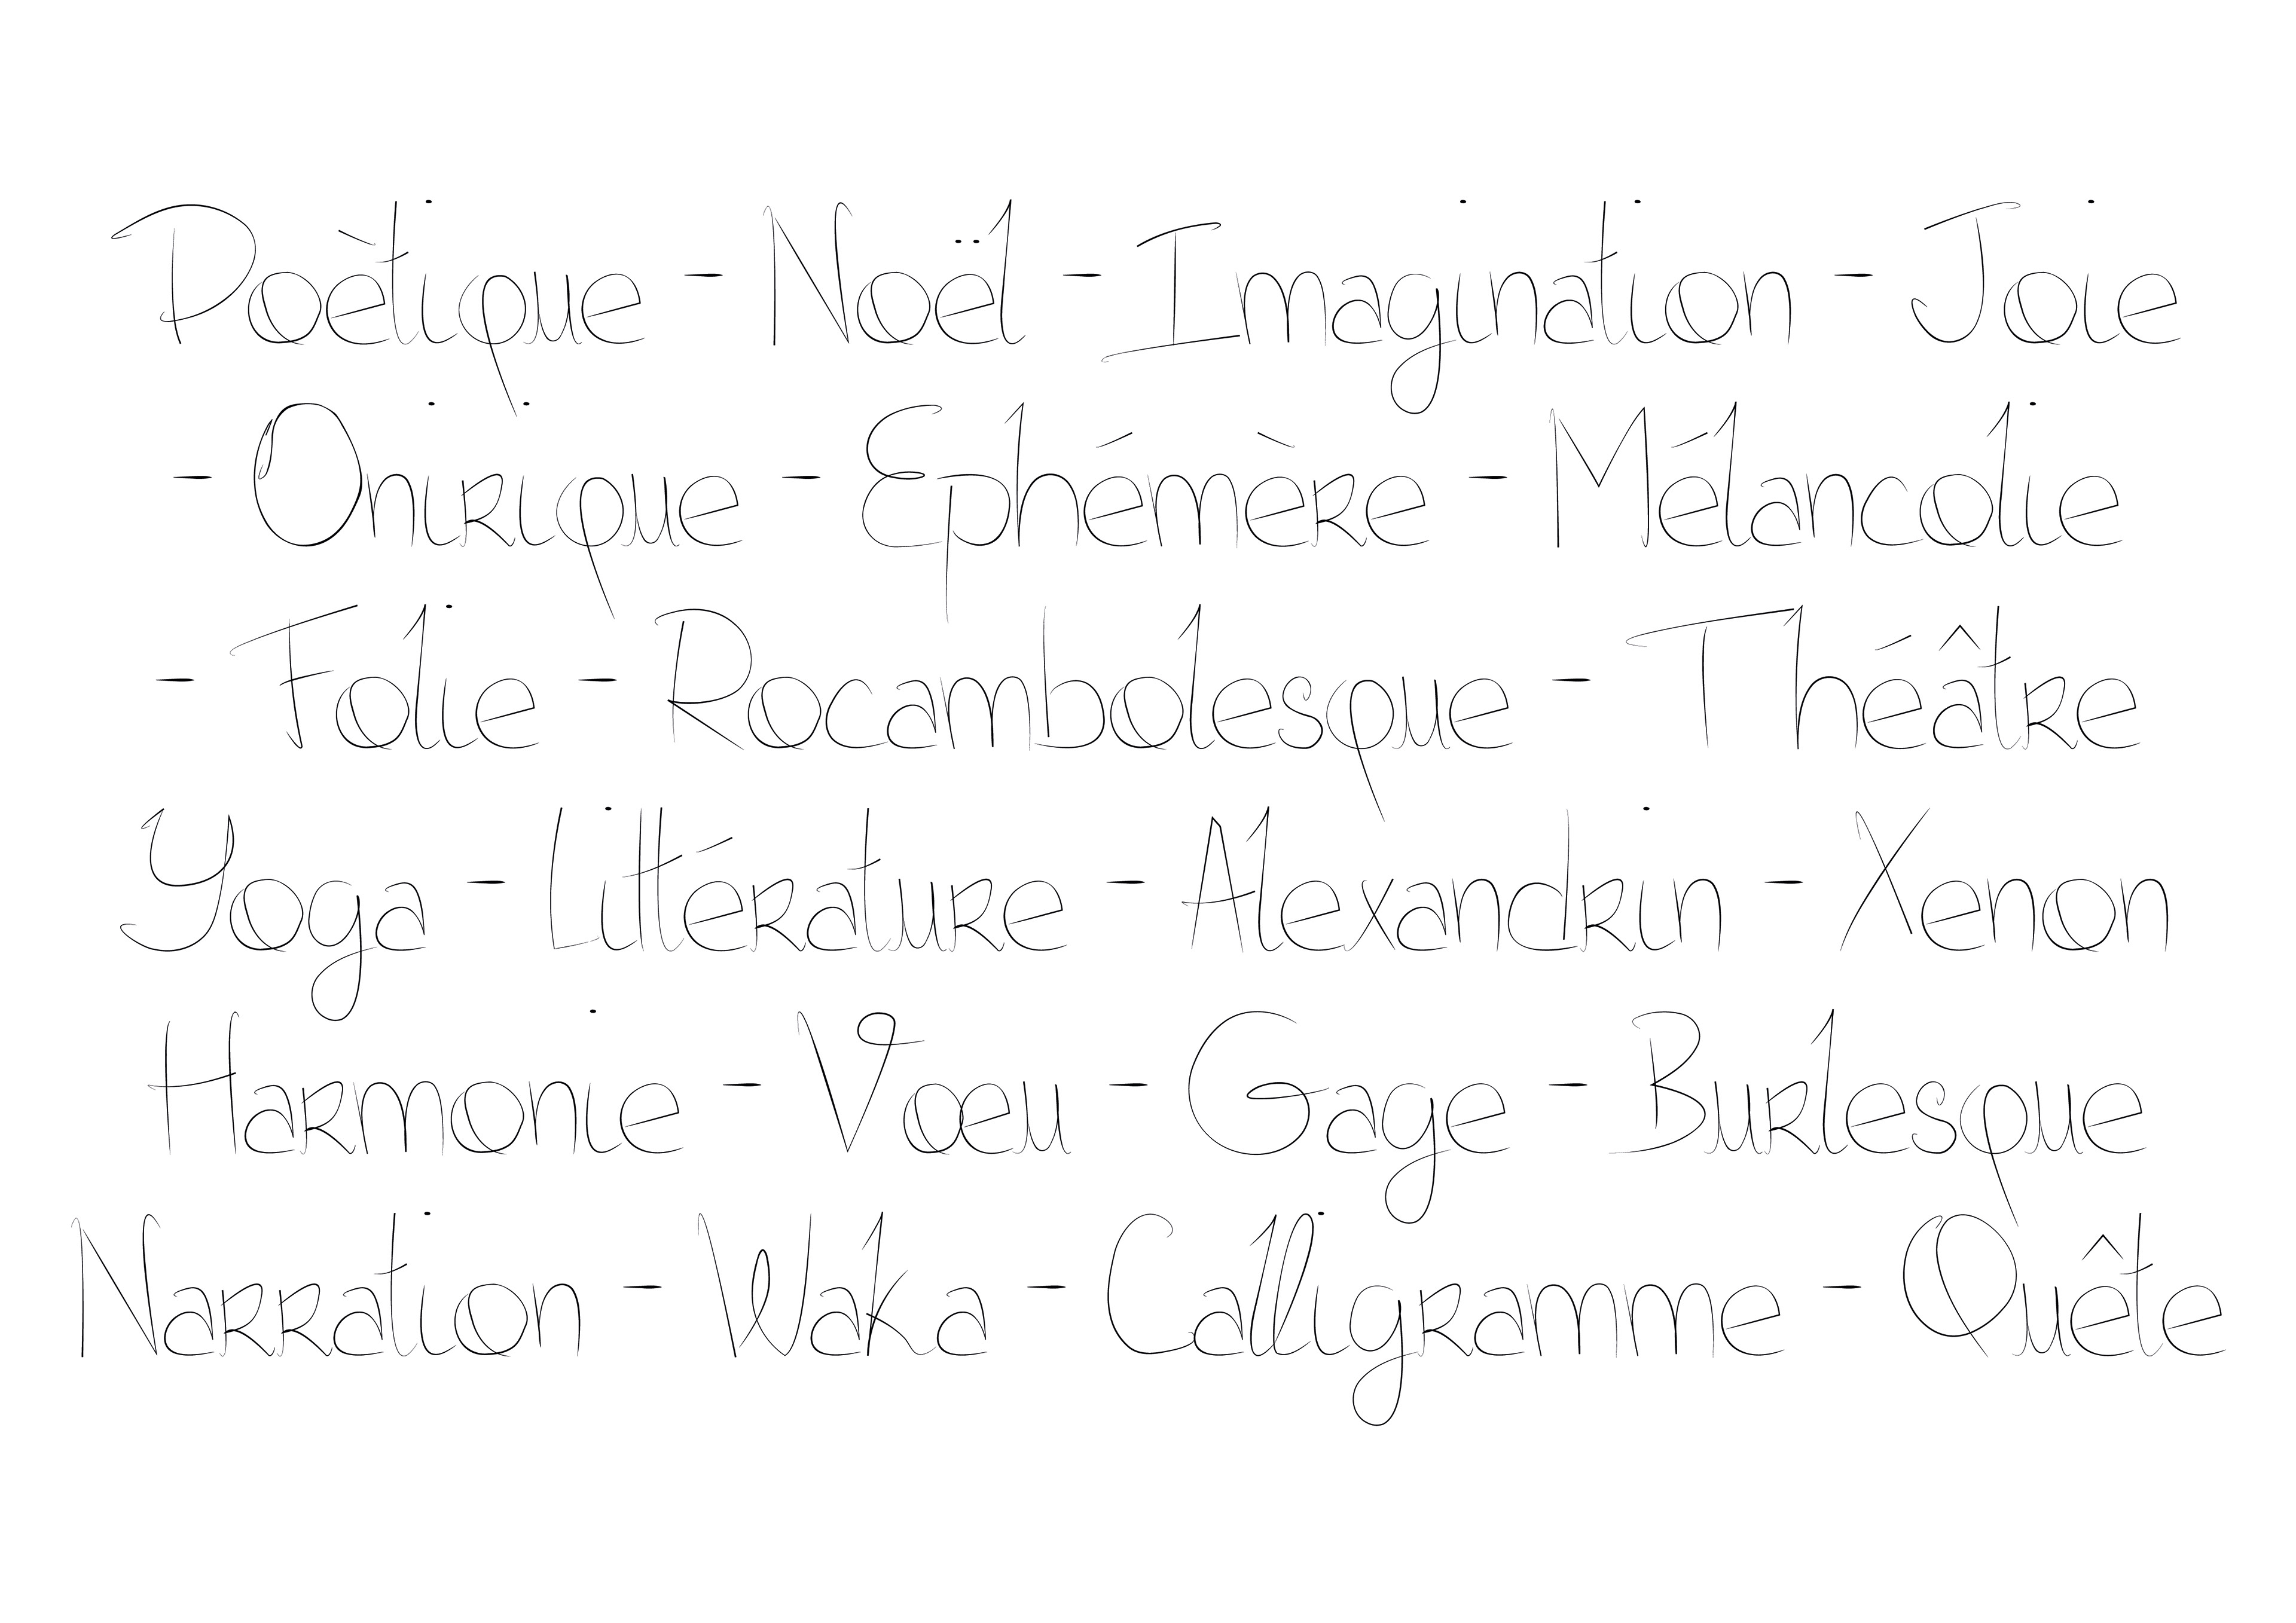 Poètique - Noël - Imagination - Joie
- Onirique - Ephémère - Mélancolie
- Folie - Rocambolesque - Théâtre
Yoga - Littérature - Alexandrin - Xenon
Harmonie - Vœu - Gage - Burlesque
Narration - Waka - Calligramme - Quête